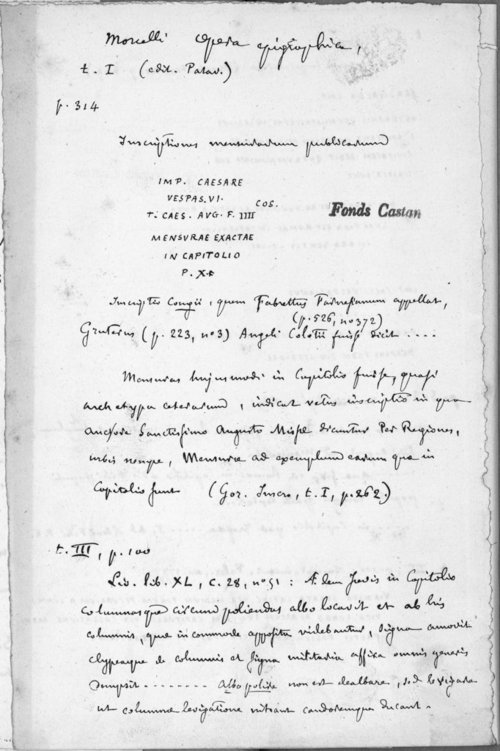 Morcelli Opera epigraphica,
t. I (edit. Patav.)
p. 314
Inscriptiones mensurarum publicarum
IMP. CAESARE
VESPAS. VI. COS.
T. CAES. AVG. F. IIII
MENSVRAE EXACTAE
IN CAPITOLIO
P. X
Fonds Castan
Inscriptio Congii, quem Fabrettus Farnesianum appellat,
(p. 526, n° 372)
Gruterus (p. 223, n° 3) Angeli Colotii fuisse dicit ....
Mensuras hujusmodi in Capitolio fuisse, quasi
archetypa ceterarum, indicat vetus inscriptio in qua
auctore Sanctissimo Augusto dicuntur Per Regiones,
urbis nempe, Mensurae ad exemplum earum quae in
Capitolio sunt (Gor. Inscr., t. I, p. 262.)
t. III, p. 100
Liv. lib. XL, c. 28, n° 51 : Aedem Jovis in Capitolio
columnasque circum poliendas albo locavit et ab his
columnis, quae incommode apposita videbantur, signa amovit
clypeaque de columnis et signa militaria affixa omnis generis
dempsit ........ Albo polire non est dealbare, sed levigare
ut columnae levigatione nitrant candoremque ducant.